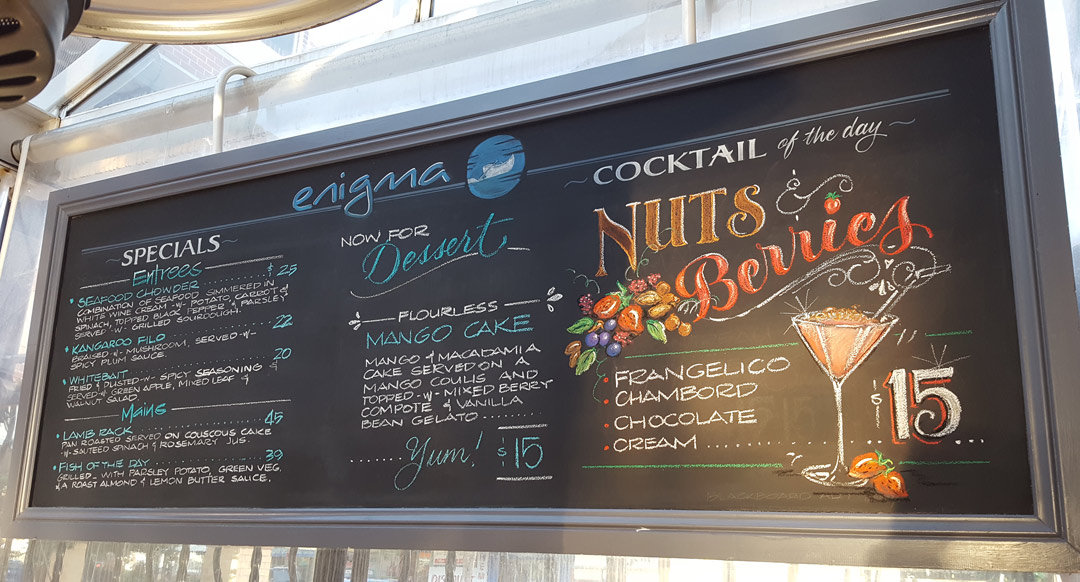 enigma
SPECIALS
Entrees
• SEAFOOD CHOWDER .......... $ 25
COMBINATION OF SEAFOOD SIMMERED IN
WHITE WINE CREAM -W- POTATO, CARROT &
SPINACH, TOPPED BLACK PEPPER & PARSLEY
SERVED -W- GRILLED SOURDOUGH.
• KANGAROO FILO .......... 22
BRAISED -W- MUSHROOM, SERVED -W-
SPICY PLUM SAUCE.
• WHITEBAIT .......... 20
FRIED & DUSTED -W- SPICY SEASONING &
SERVED -W- GREEN APPLE, MIXED LEAF &
WALNUT SALAD.
Mains
• LAMB RACK .......... 45
PAN ROASTED SERVED ON COUSCOUS CAKE
-W- SAUTEED SPINACH & ROSEMARY JUS.
• FISH OF THE DAY .......... 39
GRILLED - WITH PARSLEY POTATO, GREEN VEG.
& A ROAST ALMOND & LEMON BUTTER SAUCE.
NOW FOR
Dessert
FLOURLESS
MANGO CAKE
MANGO & MACADAMIA
CAKE SERVED ON A
MANGO COULIS AND
TOPPED -W- MIXED BERRY
COMPOTE & VANILLA
BEAN GELATO ........
Yum! $15
COCKTAIL of the day
NUTS &
Berries
• FRANGELICO
• CHAMBORD
• CHOCOLATE
• CREAM .......... $15